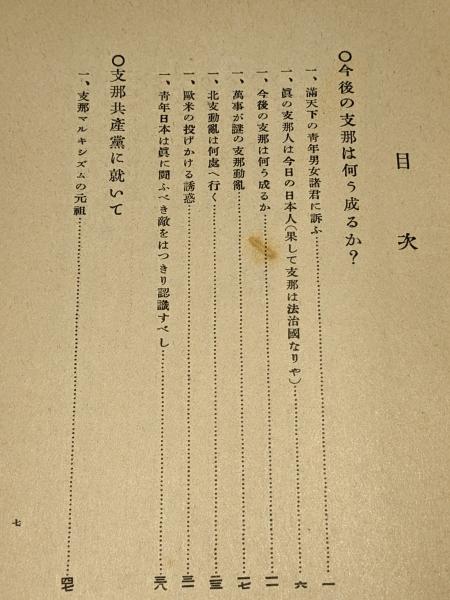 目次
〇今後の支那は何う成るか?
一、滿天下の青年男女諸君に訴ふ………一
一、眞の支那人は今日の日本人(果して支那は法治國なりや)………六
一、今後の支那は何う成るか………一一
一、萬事が謎の支那動亂………一七
一、北支動亂は何處へ行く………二三
一、歐米の投げかける誘惑………三一
一、青年日本は眞に鬪ふべき敵をはつきり認識すべし………三八
〇支那共產黨に就いて
一、支那マルキシズムの元祖………四七
七